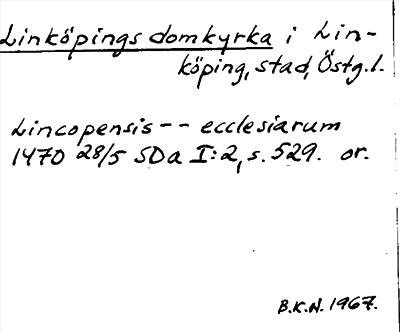 Linköpings domkyrka i Lin-
köping, stad, Östg.l.
Lincopensis -- ecclesiarum
1470 28/5 SDa I:2, s. 529. or.
B.K.N. 1967.